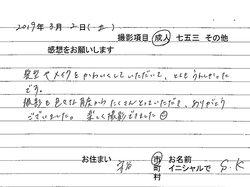 2019年3月2日(土)
撮影項目 成人 七五三 その他
感想をお願いします
髪型やメイクをかわいくしていただいて、とてもうれしかった
です。
撮影も色々な角度からたくさんとっていただき、ありがとう
ございました。楽しく撮影できました
お住まい 市町村 お名前
イニシャルで S.K